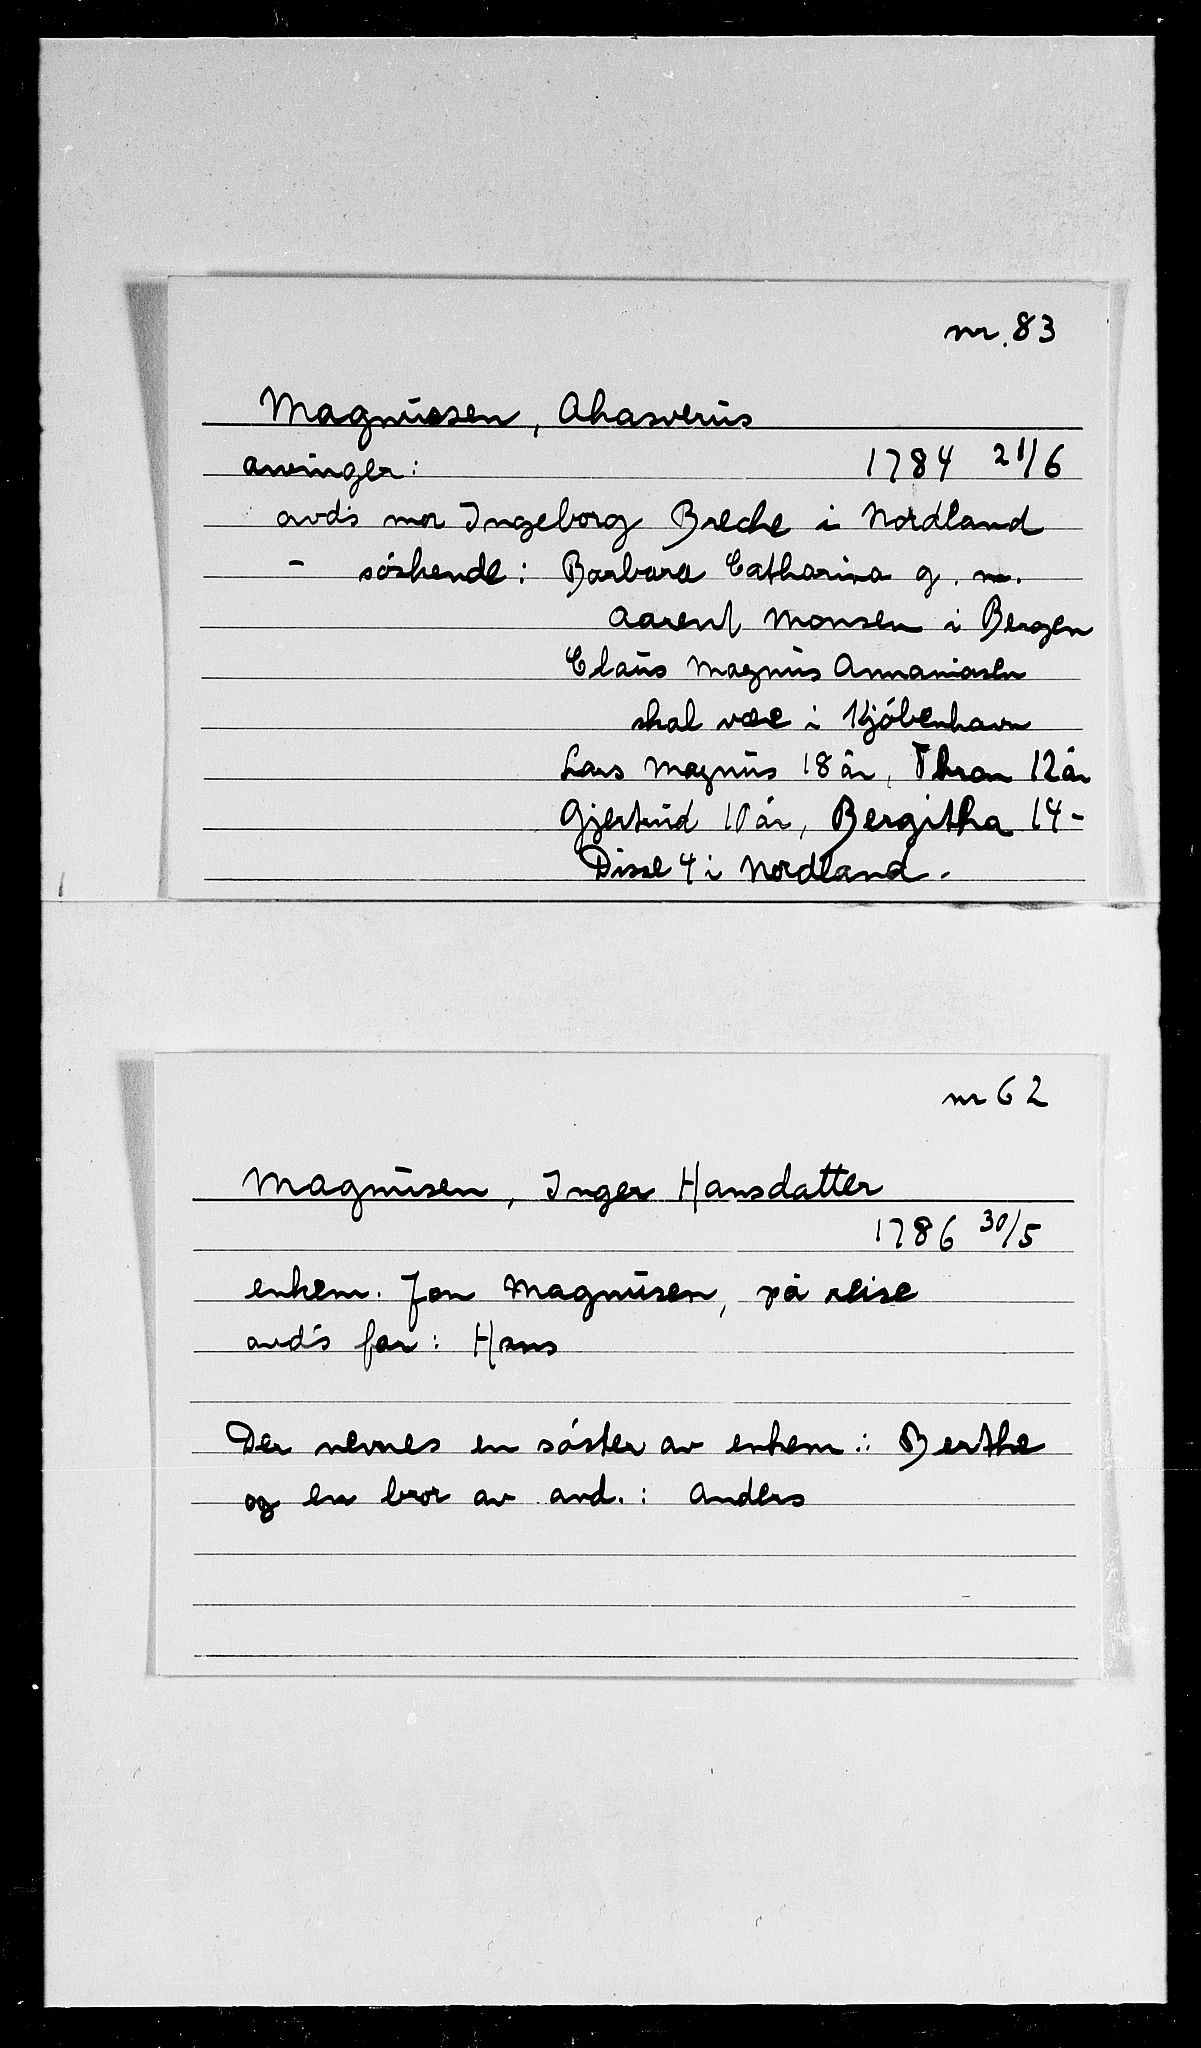 nr. 83
Magnussen, Ahasverus
arvinger: 1784 21/6
avd's mor Ingeborg Breche i Nordland
- søskende: Barbara Catharina g. m.
Aarent Monsen i Bergen
Claus Magnus Annaniasen
skal være i Kjøbenhavn
Lars Magnus 18 år, Thron 12 år
Gjertrud 10 år, Bergitha 14 -
Disse 4 i Nordland.
nr 62
Magnusen, Inger Hansdatter
1786 30/5
enkem. Jon Magnusen, på reise
avd's far: Hans
Der nevnes en søster av enkem.: Berthe
og en bror av avd.: Anders